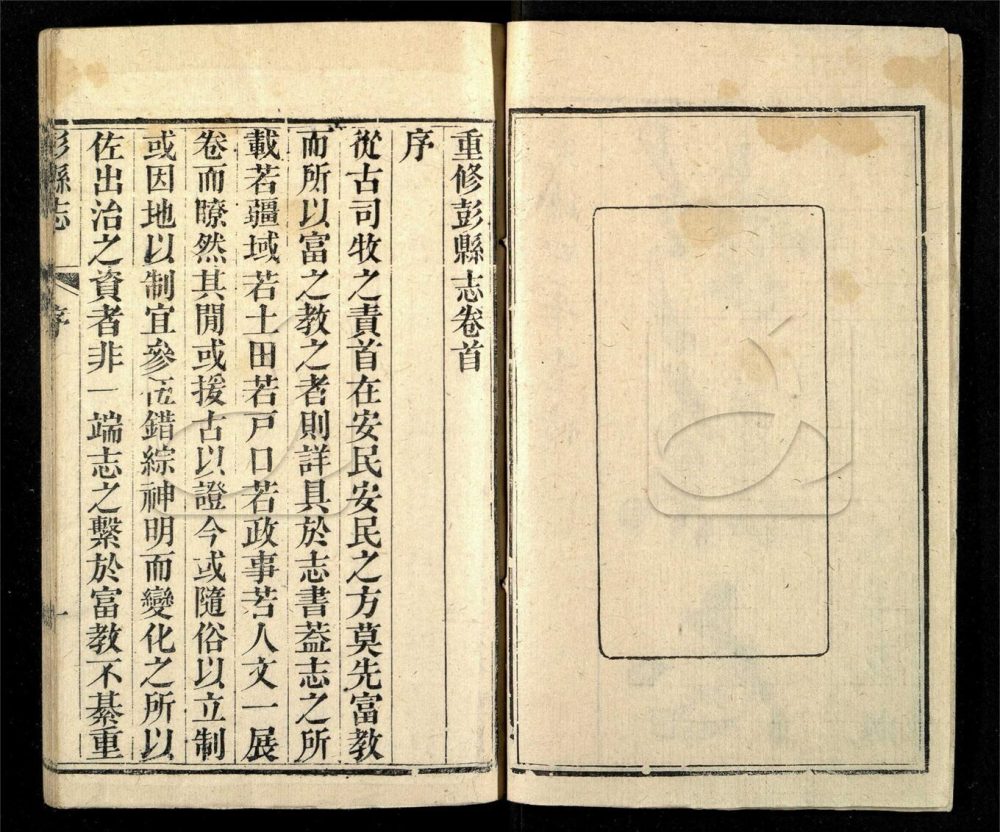 重修彭縣志卷首
序
從古司牧之責首在安民安民之方莫先富教
而所以富之教之者則詳具於志書葢志之所
載若疆域若土田若戸口若政事若人文一展
卷而瞭然其閒或援古以證今或隨俗以立制
或因地以制宜參伍錯綜神明而變化之所以
佐出治之資者非一端志之繫於富教不綦重
彭縣志 序 一